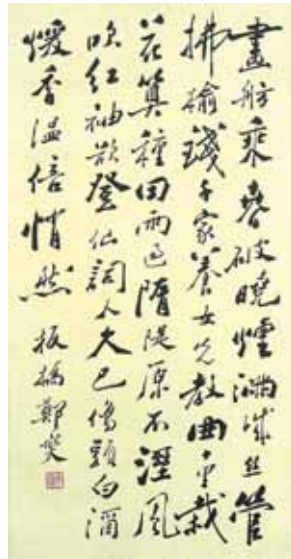 畫舫乘春破曉煙滿城絲管
拂榆錢千家養女先教曲十里栽
花算種田雨過隋隄原不溼風
吹紅袖欲登仙詞人久已傷頭白酒
煖香溫倍悄然 板橋鄭燮